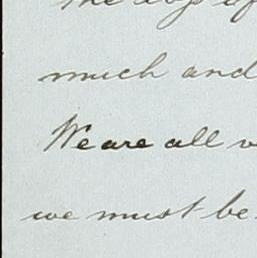 the
much and
We are all
we must be